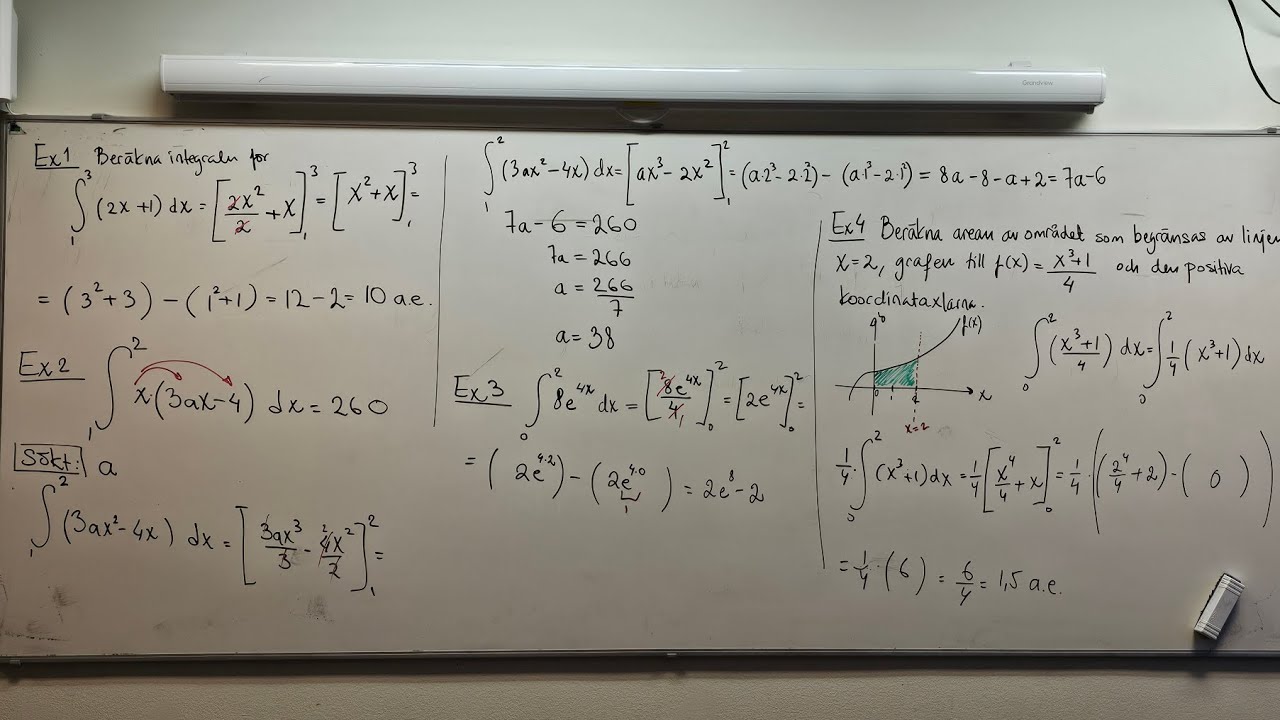 Grandview
Ex1 Beräkna integralen för
∫₁³ (2x+1) dx = [2x²/2 + x]₁³ = [x²+x]₁³ =
= (3²+3) - (1²+1) = 12-2 = 10 a.e.
Ex2 ∫₁² x·(3ax-4) dx = 260
Sökt: a
∫₁² (3ax²-4x) dx = [3ax³/3 - 4x²/2]₁² =
∫₁² (3ax²-4x) dx = [ax³-2x²]₁² = (a·2³-2·2²) - (a·1³-2·1²) = 8a-8-a+2 = 7a-6
7a-6 = 260
7a = 266
a = 266/7
a = 38
Ex3 ∫₀² 8e^{4x} dx = [8e^{4x}/4]₀² = [2e^{4x}]₀² =
= (2e^{4·2}) - (2e^{4·0}) = 2e⁸-2
1
Ex4 Beräkna arean av området som begränsas av linjen
x=2, grafen till f(x) = (x³+1)/4 och den positiva
koordinataxlarna.
f(x)
x
x=2
∫₀² ((x³+1)/4) dx = ∫₀² 1/4 (x³+1) dx
1/4 · ∫₀² (x³+1) dx = 1/4 [x⁴/4 + x]₀² = 1/4 · ((2⁴/4 + 2) - (0))
= 1/4 · (6) = 6/4 = 1,5 a.e.